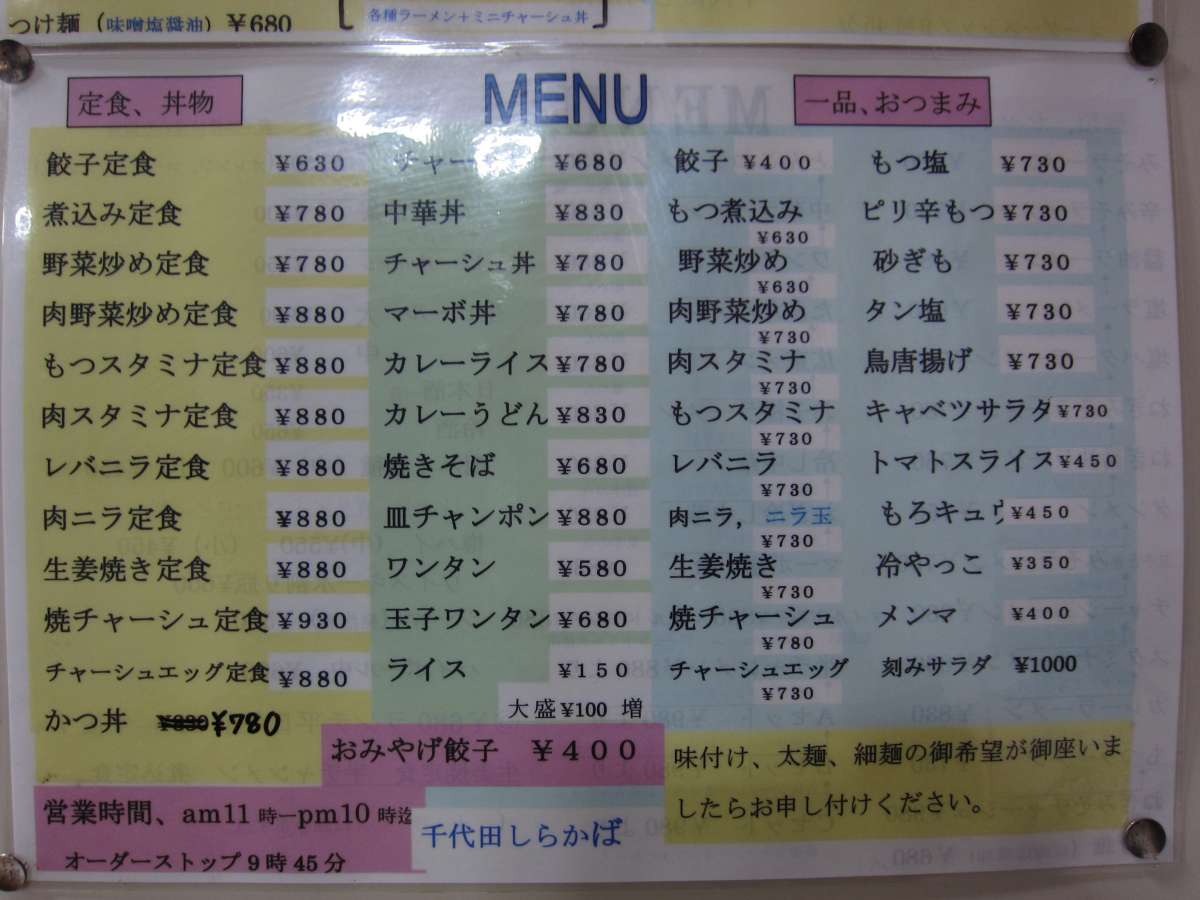 つけ麺（味噌塩醤油）￥680
各種ラーメン＋ミニチャーシュ丼
MENU
定食、丼物
餃子定食 ¥630
煮込み定食 ¥780
野菜炒め定食 ¥780
肉野菜炒め定食 ¥880
もつスタミナ定食 ¥880
肉スタミナ定食 ¥880
レバニラ定食 ¥880
肉ニラ定食 ¥880
生姜焼き定食 ¥880
焼チャーシュ定食 ¥930
チャーシュエッグ定食 ¥880
かつ丼 ¥830 ¥780
チャー ¥680
中華丼 ¥830
チャーシュ丼 ¥780
マーボ丼 ¥780
カレーライス ¥780
カレーうどん ¥830
焼きそば ¥680
皿チャンポン ¥880
ワンタン ¥580
玉子ワンタン ¥680
ライス ¥150
大盛¥100 増
おみやげ餃子 ¥400
一品、おつまみ
餃子 ¥400
もつ煮込み ¥630
野菜炒め ¥630
肉野菜炒め ¥730
肉スタミナ ¥730
もつスタミナ ¥730
レバニラ ¥730
肉ニラ，ニラ玉 ¥730
生姜焼き ¥730
焼チャーシュ ¥780
チャーシュエッグ ¥730
もつ塩 ¥730
ピリ辛もつ ¥730
砂ぎも ¥730
タン塩 ¥730
鳥唐揚げ ¥730
キャベツサラダ ¥730
トマトスライス ¥450
もろキュウ ¥450
冷やっこ ¥350
メンマ ¥400
刻みサラダ ¥1000
味付け、太麺、細麺の御希望が御座いま
したらお申し付けください。
営業時間、am11時―pm10時迄
オーダーストップ9時45分
千代田しらかば